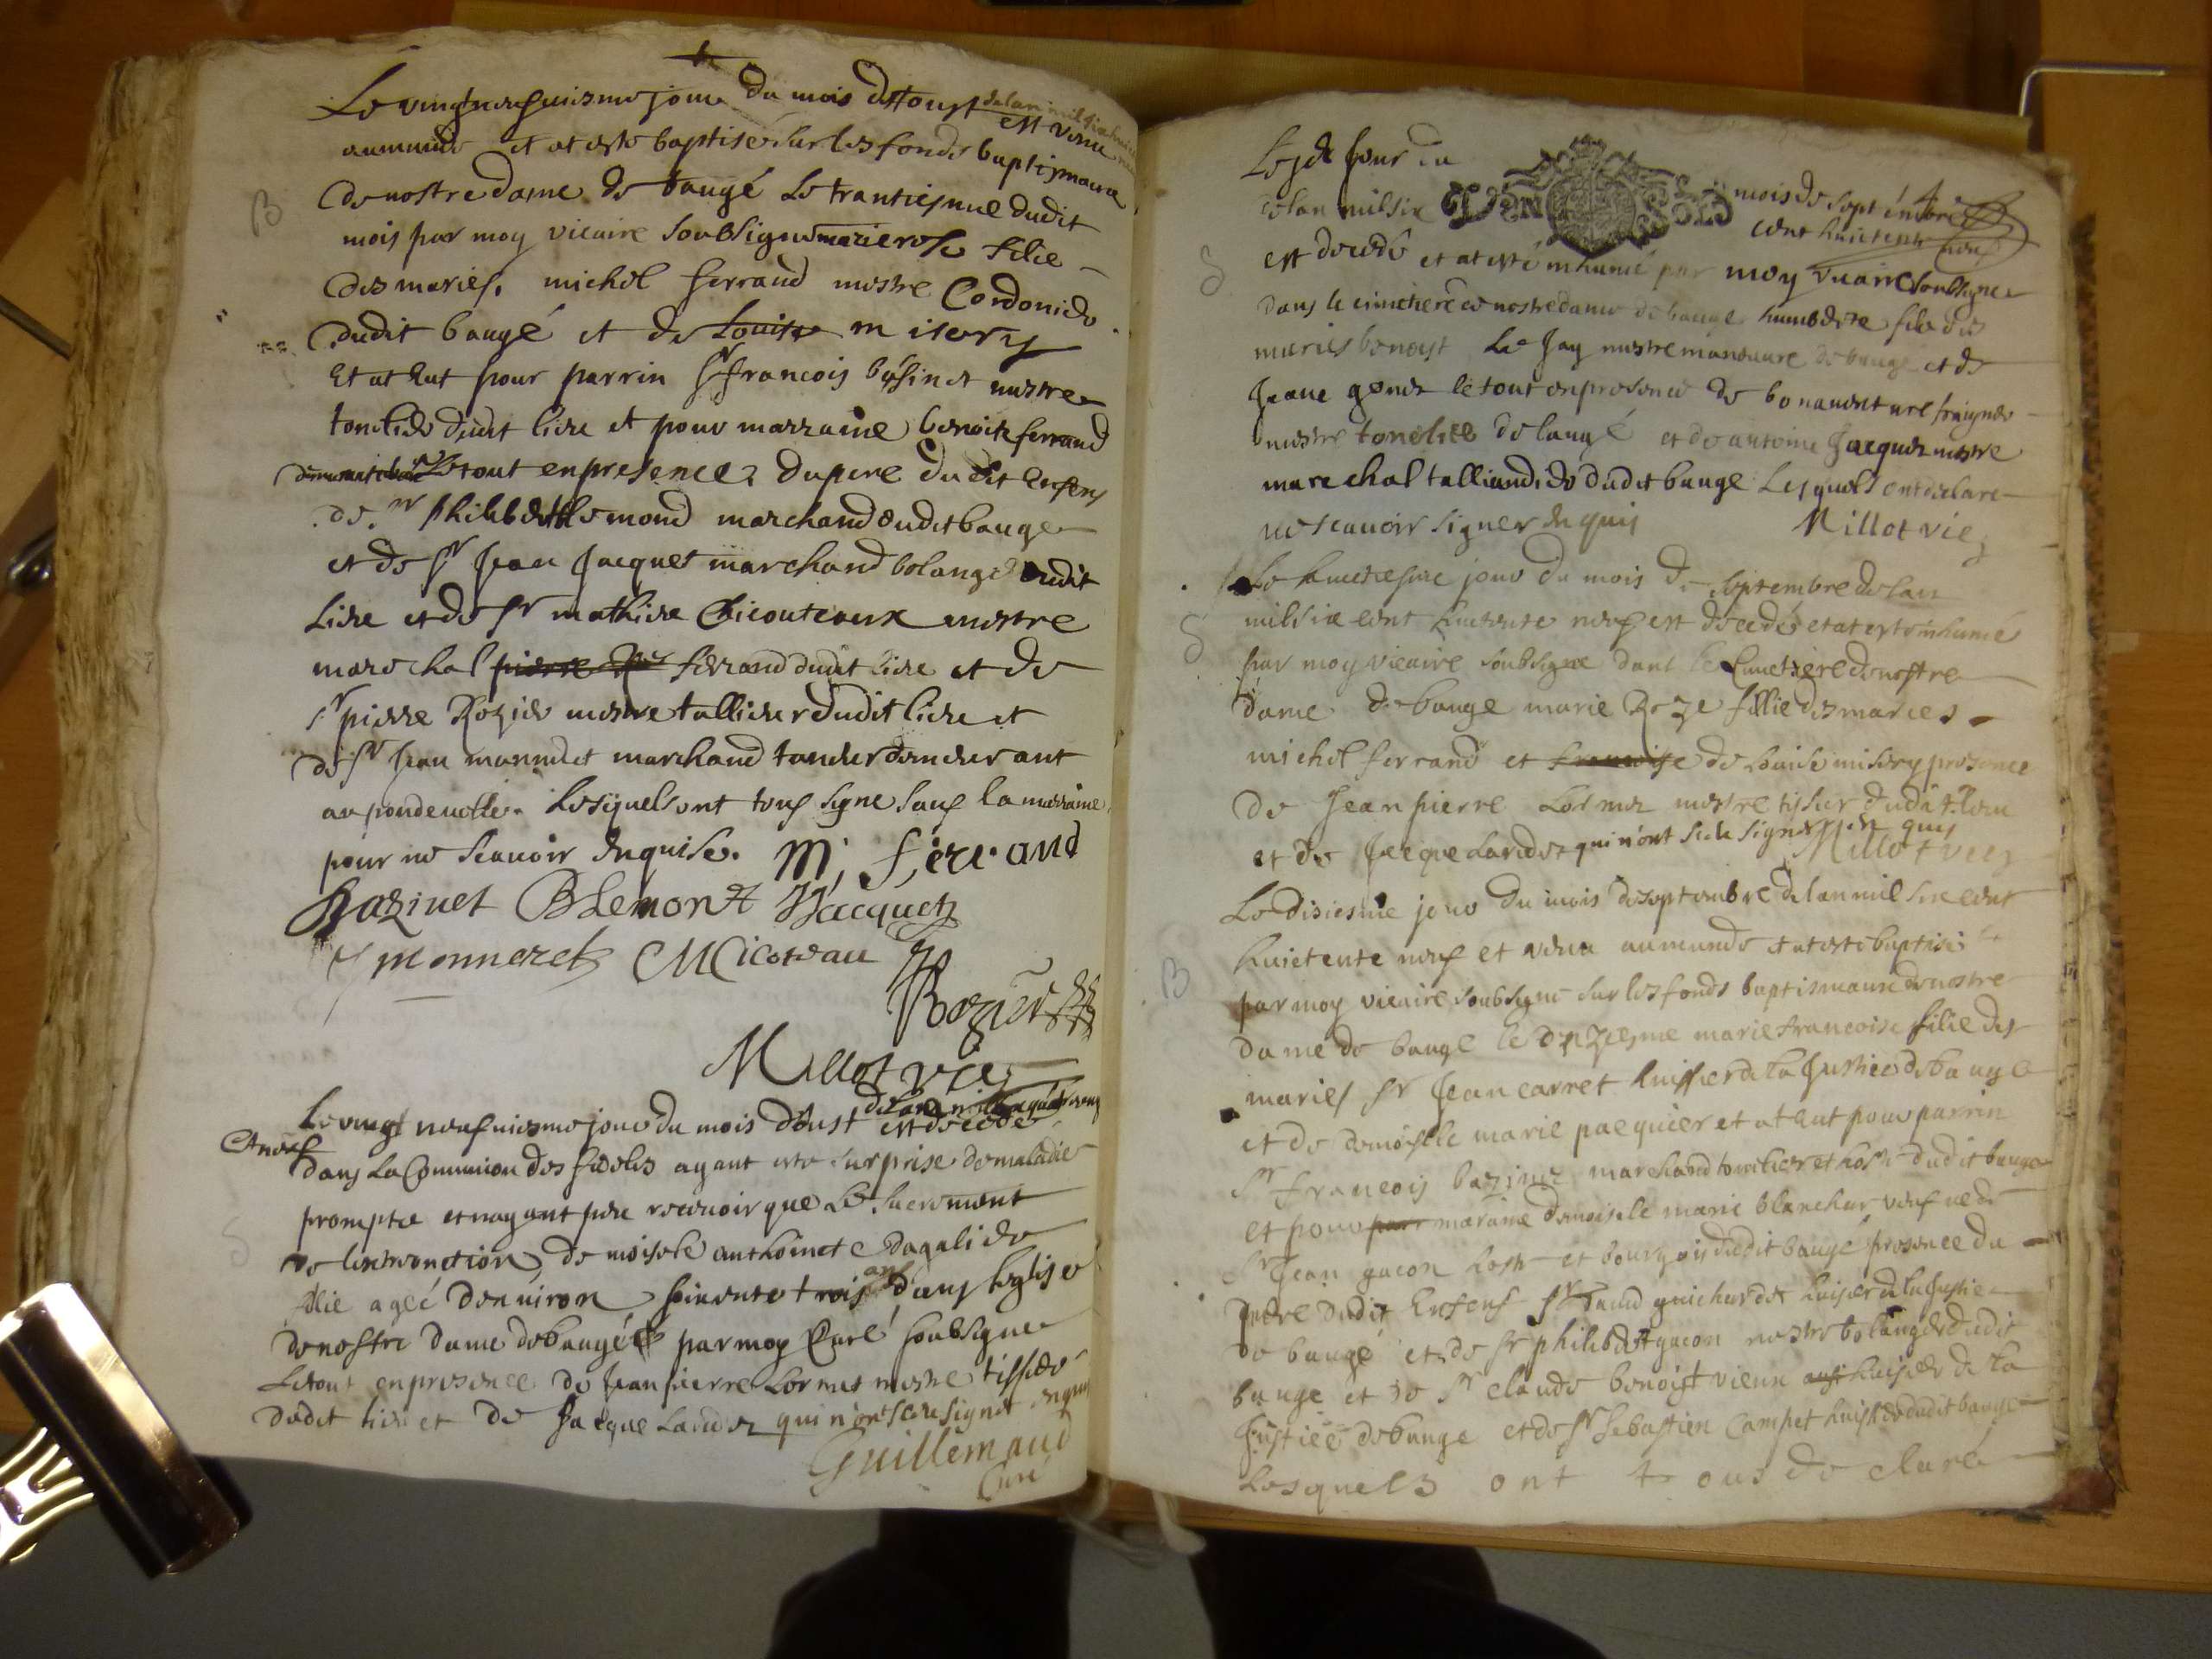 Le vingtneufuiesme jour du mois d'Aoust de lan mil six
est venu
aumunde et at esté baptisé sur les fonds baptismaux
de nostre dame de baugé le trantiesme dudit
B
mois par moy vicaire soubsigné marie rose filie
des mariés michel ferrand mestre Cordonier
dudit baugé et de Louise misery
et at eut pour parrin sr francois basinet mestre
tonelier dudit lieu et pour marraine benoite ferrand
le tout en presence du pere du dit enfens
de sr philibert blemond marchand dudit bauge
et de sr Jean Jacquet marchand bolangé dudit
lieu et de sr mathieu Chicouteaux mestre
marechal pierre ferrand dudit lieu et de
sr pierre Rozier mestre tallieur dudit lieu et
de sr Jean monneret marchand taneur demeurant
au pondevelle. Lesquels ont tous signe sauf la marraine
pour ne scauoir enquise. M, ferrand
Bazinet BLemont JJacquet
J monneret MCicoteau
Rozier
Millot vic
Le vingt neufuiesme jour du mois d'Aust de lan mil
est decedé
et neuf
dans la Communion des fideles ayant esté surprise de maladie
prompte et nayant peu receuoir que le sacrement
de lextreonction, demoisele anthoinete dagalier
filie agée denuiron soixente trois ans dans leglise
de nostre dame de baugé par moy Curé soubsigne
Letout enpresence de Jean pierre Lornet mestre tissier
dudit lieu et de Jacque Laridet qui n'ont sceu signer enquis
Guillemaud
Curé
Le 7e Jour du mois de septembre
de lan mil six cent huictente neuf
DEN SOLS
est decedé et at esté inhumé par moy vicaire soubsigne
dans le cimetiere de nostre dame de bauge humberte filie des
mariés benoist Le Jay mestre manouure de baugé et de
Jeane gonet le tout en presence de bonauenture fraigner
mestre tonelier de baugé et de antoine Jacquet mestre
marechal talliandier dudit bauge Lesquels ont declaré
ne scauoir signer enquis Millot vic
Le huictiesme jour du mois de septembre de lan
mil six cent huictente neuf est decedé et at esté inhumé
par moy vicaire soubsigne dans le Cimetiere de nostre
dame de bauge marie Roze fillie des maries
michel ferrand et francoise de Louise misery presence
de Jean pierre Lornet mestre tissier dudit lieu
et de Jacque Laridet qui n'ont sceu signer enquis
Millot vic
Le diziesme jour du mois de septembre de lan mil six cent
huictente neuf et venu aumunde et at esté baptisé
B
par moy vicaire soubsigné sur les fonds baptismaux de nostre
dame de bauge le onziesme marie francoise filie des
mariés sr Jean carret huissier de la Justice de bauge
et de demoiselle marie pacquier et at eut pour parrin
sr francois bazinet marchand tonelier et hoste dudit bauge
et pour maraine demoisele marie blanchar veufue de
sr Jean gacon hoste et bourgois dudit baugé presence du
pere dudit Enfens sr Daud guichardet huisier de la Justice
de baugé et de sr philibert gacon mestre bolanger dudit
bauge et de sr claude benoist vieux huisier de la
Justice de bauge et de sr sebastien Campet huissier dudit bauge
Lesquels ont tous declaré